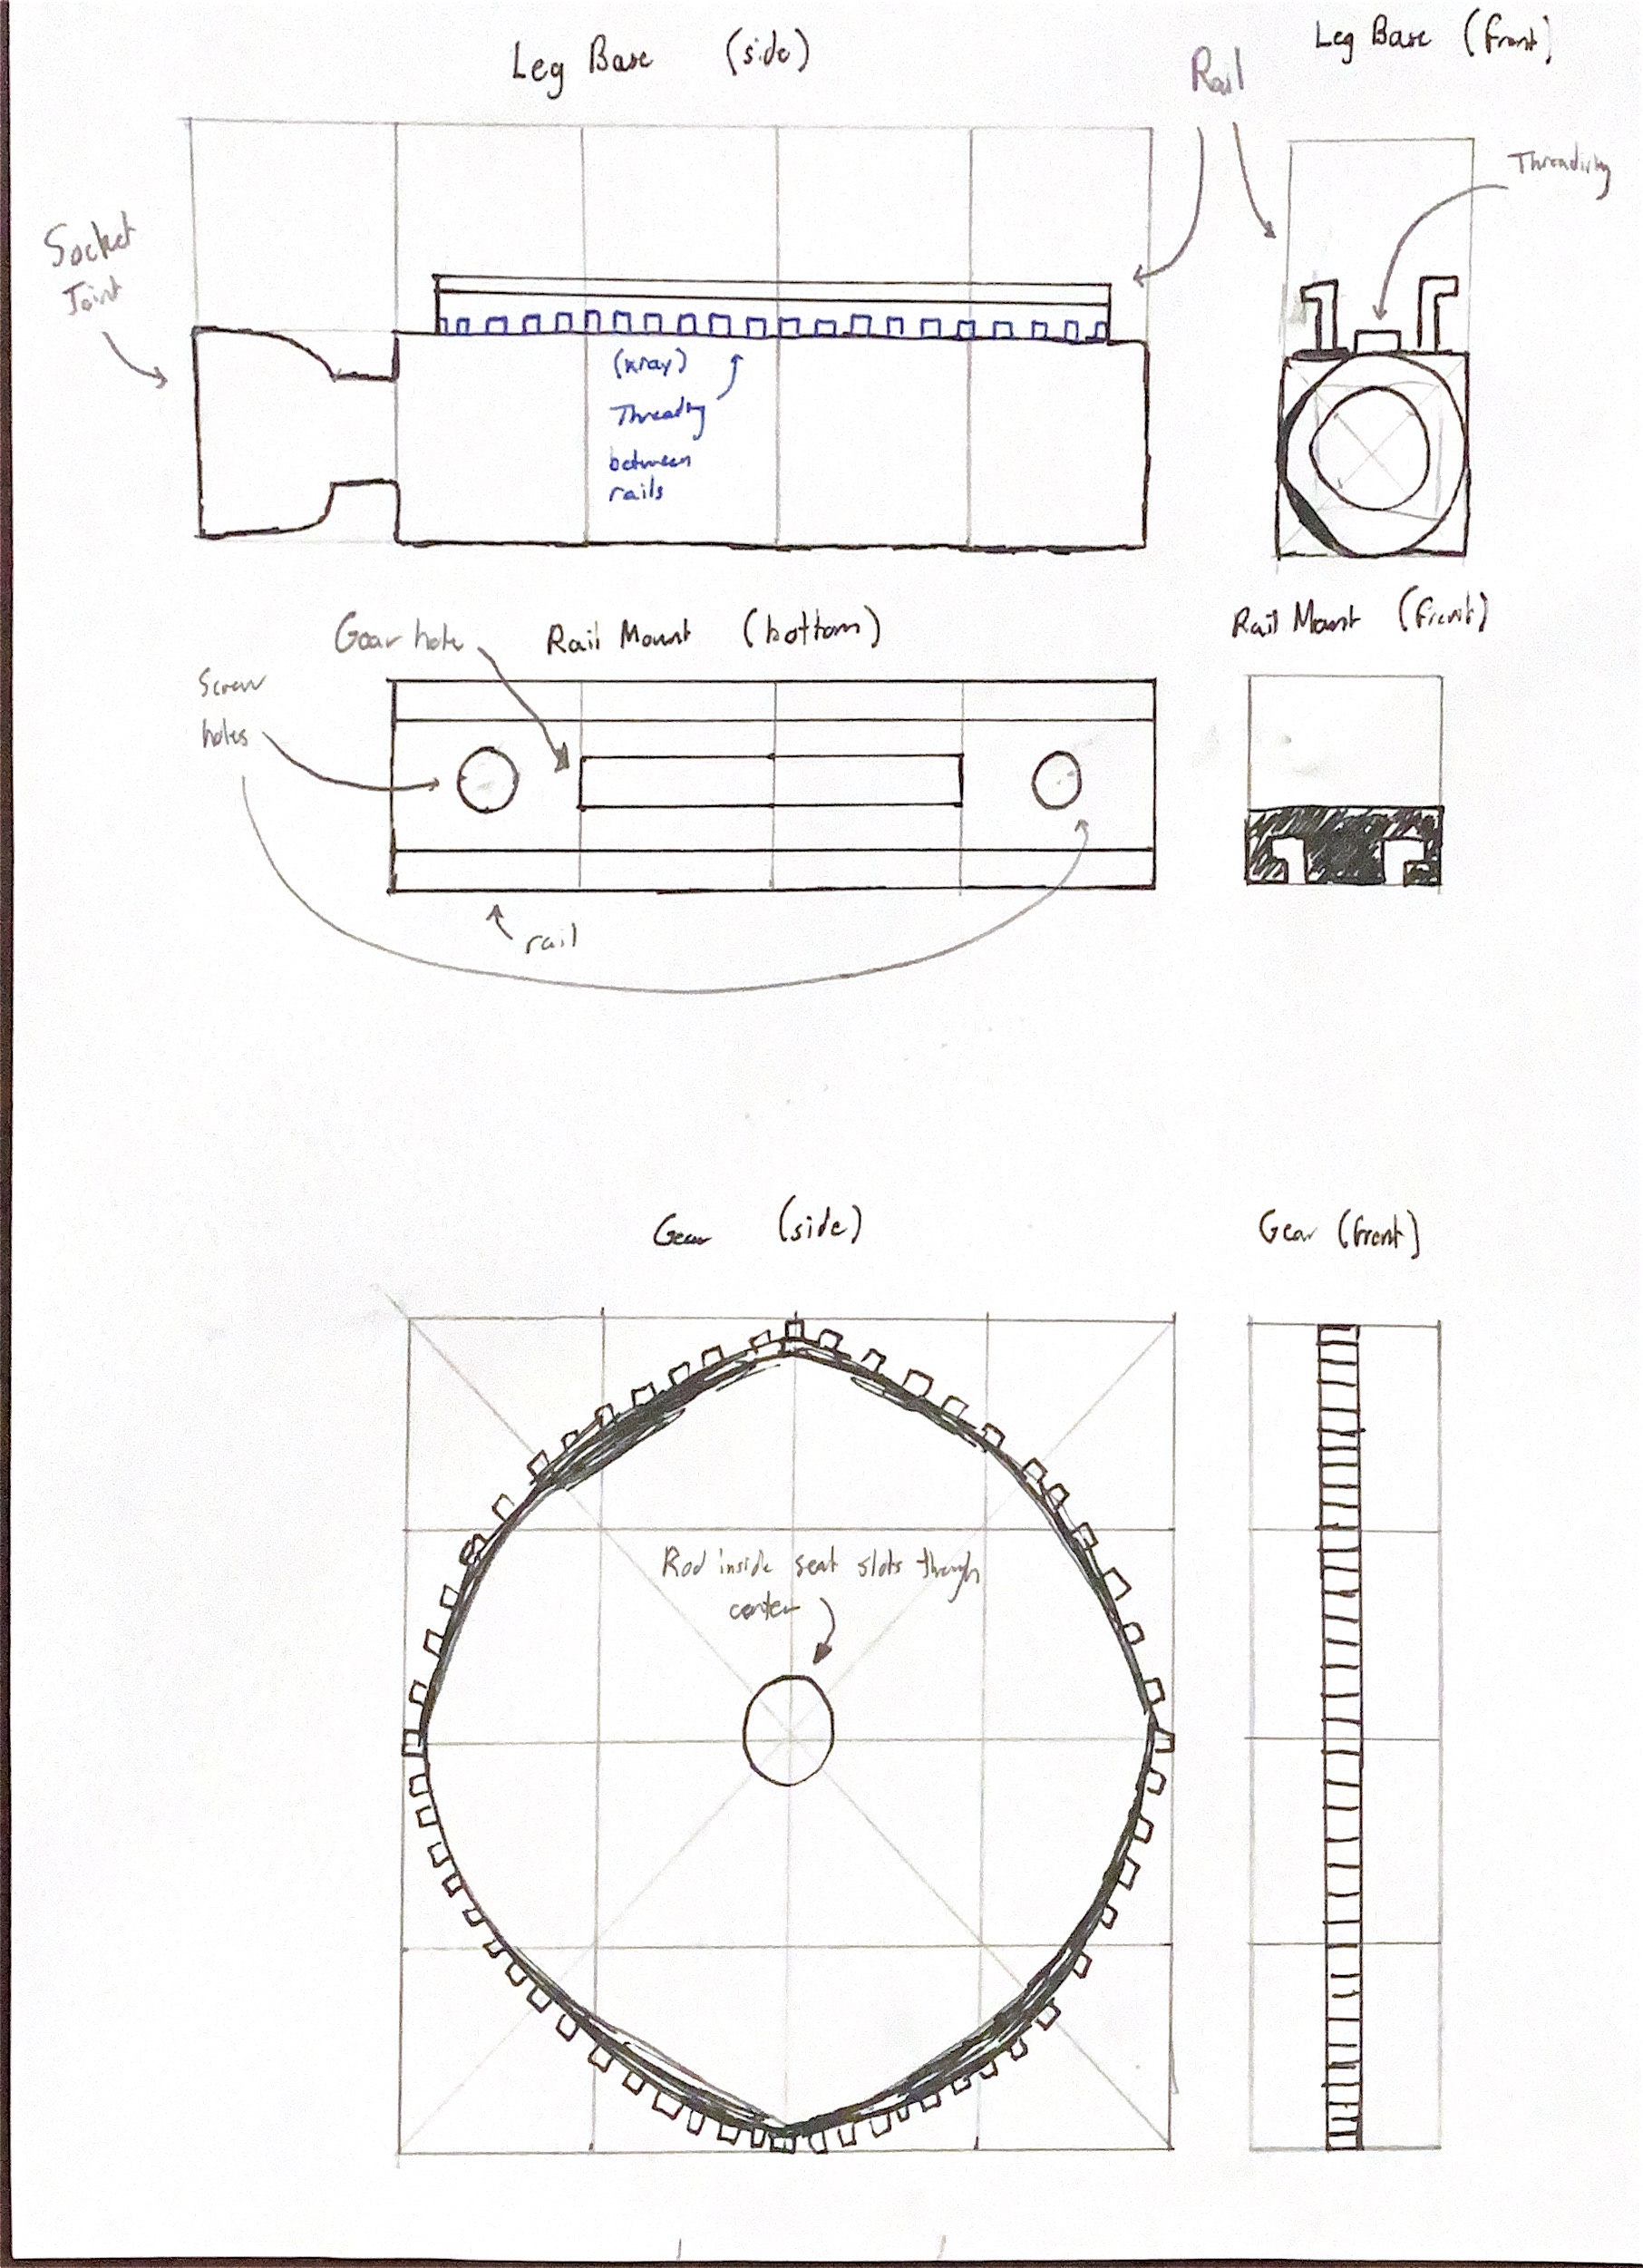 Leg Base (side)
Rail
Leg Base (front)
Threading
Socket
Joint
(xray)
Threading
between
rails
Gear hole
Rail Mount (bottom)
Rail Mount (front)
Screw
holes
rail
Gear (side)
Gear (front)
Rod inside seat slots through
center